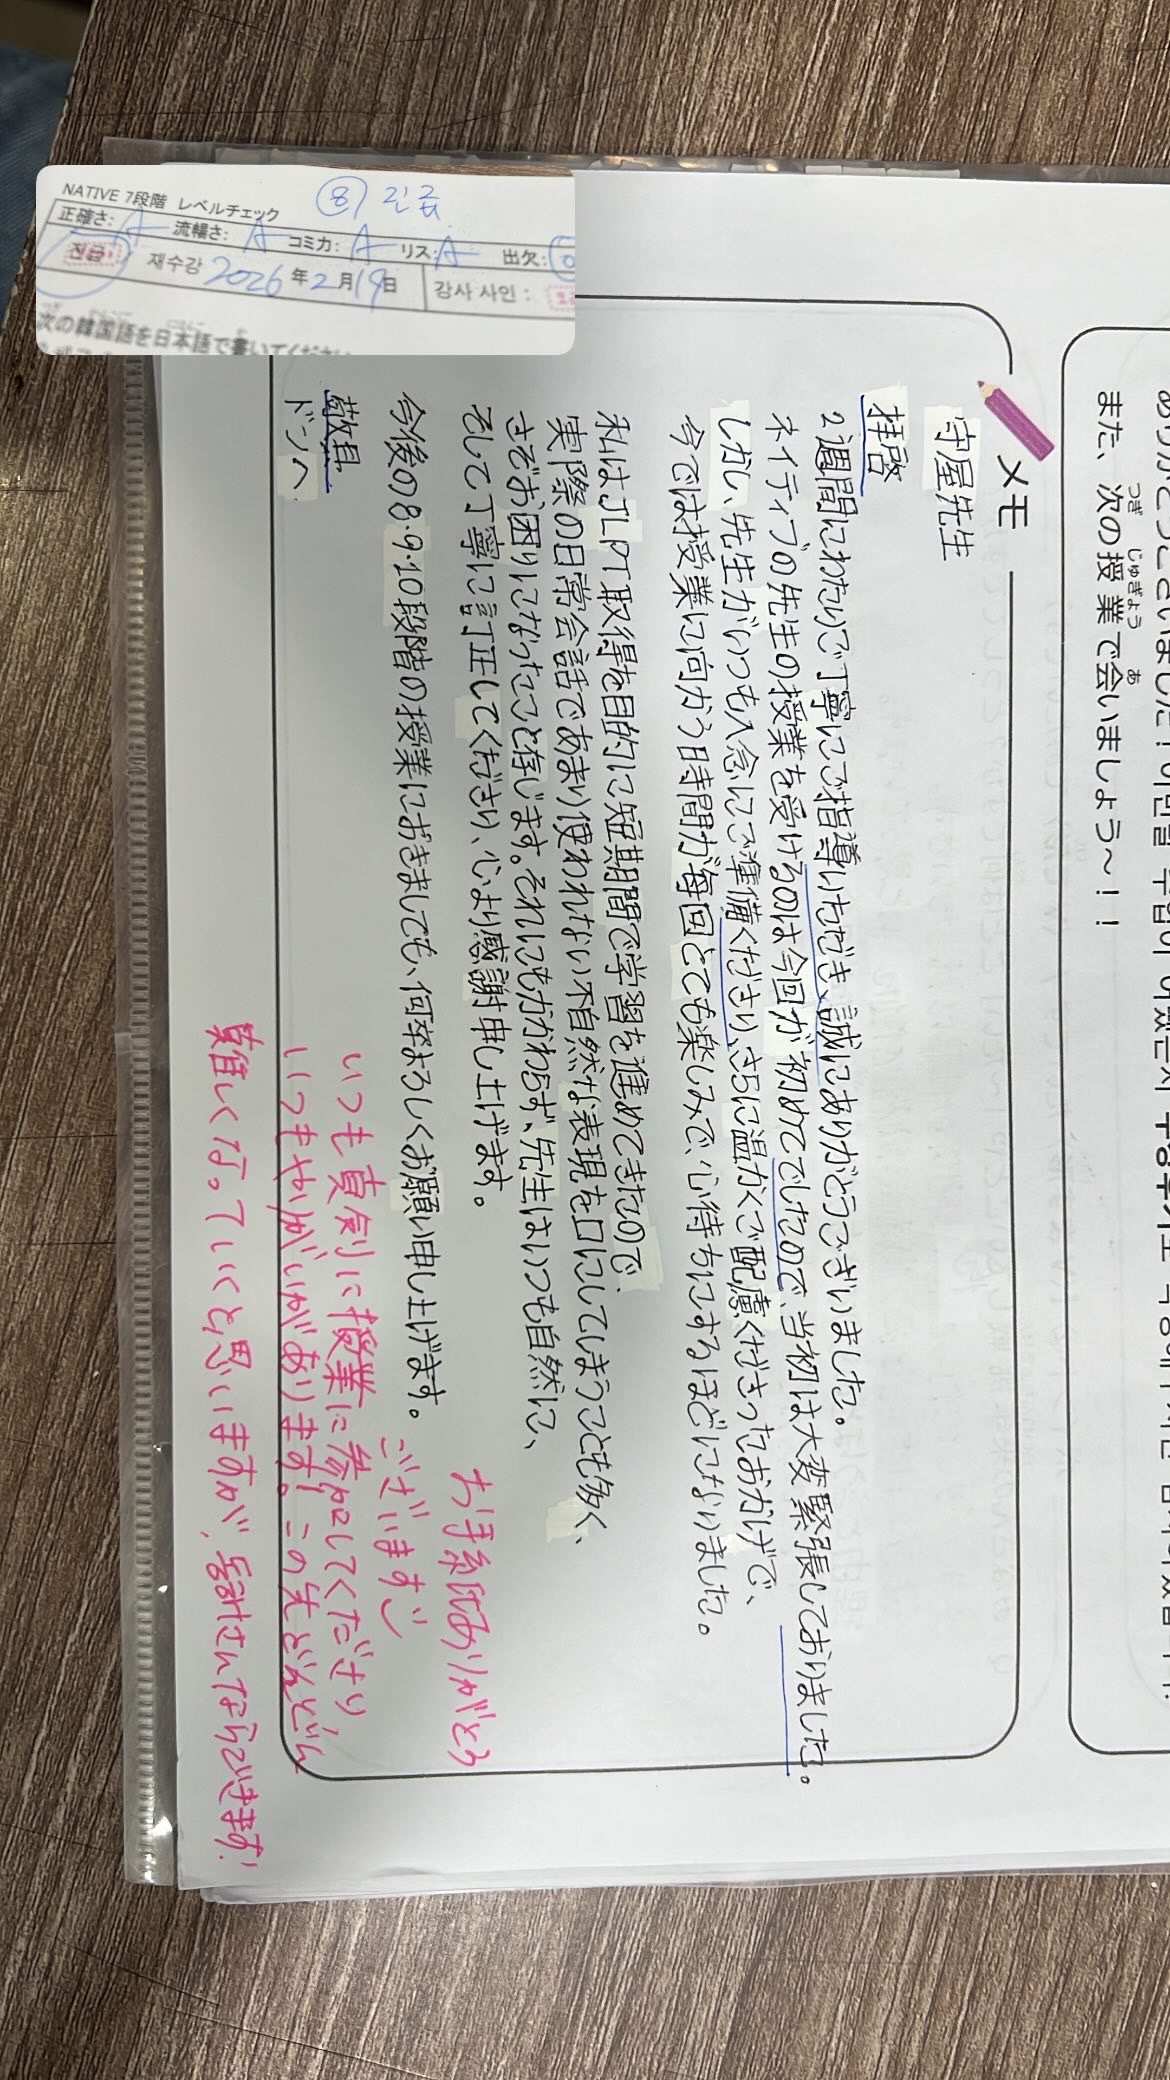 NATIVE 7段階 レベルチェック ⑧ 진급
正確さ: A 流暢さ: A コミ力: A リス: A 出欠:
진급 / 재수강 2026年2月19日 강사 사인 :
次の韓国語を日本語で書いてください
また、次の授業で会いましょう～！！
つぎ じゅぎょう あ
メモ
守屋先生
拝啓
2週間にわたりご丁寧にご指導いただき、誠にありがとうございました。
ネイティブの先生の授業を受けるのは今回が初めてでしたので、当初は大変緊張しておりました。
しかし、先生がいつも入念にご準備くださり、さらに温かくご配慮くださったおかげで、
今では授業に向かう時間が毎回とても楽しみで、心待ちにするほどになりました。
私はJLPT取得を目的に短期間で学習を進めてきたので、
実際の日常会話であまり使われない不自然な表現を口にしてしまうことも多く、
さぞお困りになったことと存じます。それにもかかわらず、先生はいつも自然に、
そして丁寧に訂正してくださり、心より感謝申し上げます。
今後の8・9・10段階の授業におきましても、何卒よろしくお願い申し上げます。
敬具
ドンヘ
お手紙ありがとう
ございます
いつも真剣に授業に参加してくださり
いつもやりがいがあります! この先どんどん
難しくなっていくと思いますが、